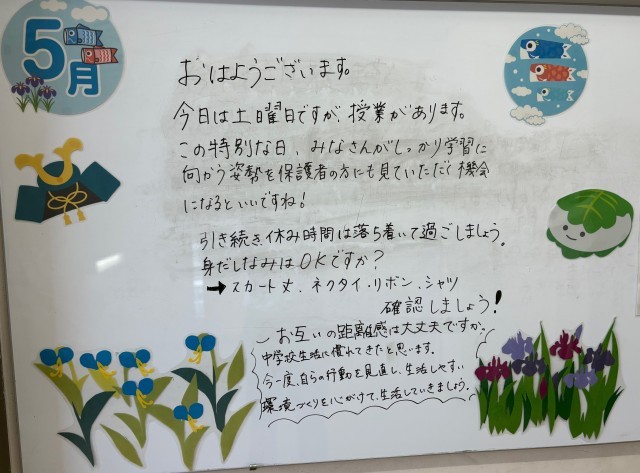 5月
おはようございます。
今日は土曜日ですが、授業があります。
この特別な日、みなさんがしっかり学習に
向かう姿勢を保護者の方にも見ていただく機会
になるといいですね!
引き続き、休み時間は落ち着いて過ごしましょう。
身だしなみはOKですか?
→スカート丈、ネクタイ・リボン、シャツ
確認しましょう!
お互いの距離感は大丈夫ですか?
中学校生活に慣れてきたと思います。
今一度、自らの行動を見直し、生活しやすい
環境づくりを心がけて、生活していきましょう。